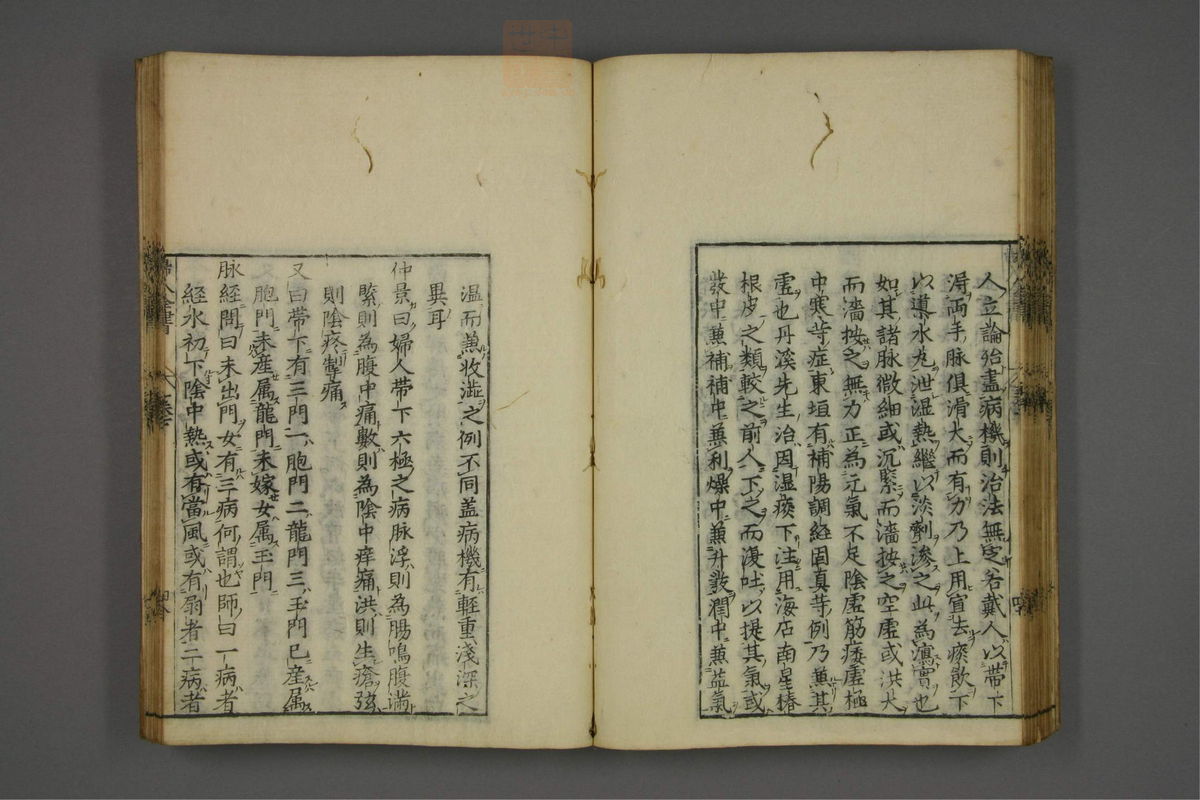 人立論殆盡病機則治法無定若戴人以帶下
淂両手脉俱滑大而有力乃上用宣去痰飲下
以導水丸泄湿熱継以淡劑滲之此為瀉實也
如其諸脉微細或沉緊而濇按之空虚或洪大
而濇按之無力正為元氣不足陰虚筋痿虚極
中寒等症東垣有補陽調経固真等例乃兼其
虚也丹溪先生治因湿痰下注用海石南星椿
根皮之類較之前人下之而復吐以提其氣或
發中兼補補中兼利燥中兼升發潤中兼益氣
温而兼收澁之例不同盖病機有輕重淺深之
異耳
仲景曰婦人帶下六極之病脉浮則為腸鳴腹満
緊則為腹中痛數則為陰中痒痛洪則生瘡弦
則陰疼掣痛
又曰帶下有三門一胞門二龍門三玉門已産属
胞門未産属龍門未嫁女属玉門
脉經問曰未出門女有三病何謂也師曰一病者
経水初下陰中熱或有當風或有扇者二病者